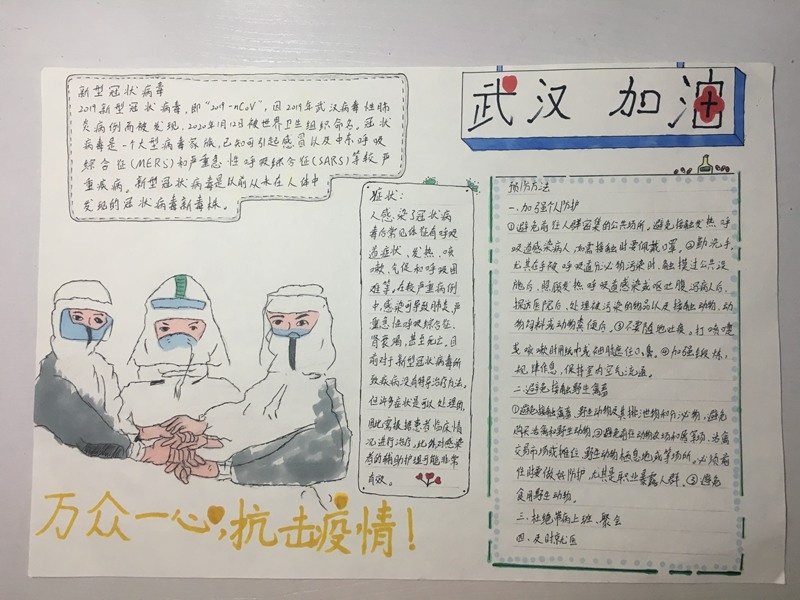 武汉 加油
新型冠状病毒
2019新型冠状病毒,即"2019-nCoV",因2019年武汉病毒性肺
炎病例而被发现,2020年1月12日被世界卫生组织命名。冠状
病毒是一个大型病毒家族,已知可引起感冒以及中东呼吸
综合征(MERS)和严重急性呼吸综合征(SARS)等较严
重疾病。新型冠状病毒是以前从未在人体中
发现的冠状病毒新毒株。
症状:
人感染了冠状病
毒后常见体征有呼吸
道症状、发热、咳
嗽、气促和呼吸困
难等。在较严重病例
中,感染可导致肺炎、严
重急性呼吸综合征、
肾衰竭,甚至死亡。目
前对于新型冠状病毒所
致疾病没有特异治疗方法。
但许多症状是可以处理的,
因此需根据患者临床情
况进行治疗。此外,对感染
者的辅助护理可能非常
有效。
预防方法
一、加强个人防护
①避免前往人群密集的公共场所。避免接触发热、呼
吸道感染病人,如需接触时要佩戴口罩。②勤洗手。
尤其在手被呼吸道分泌物污染时、触摸过公共设
施后、照顾发热呼吸道感染或呕吐腹泻病人后、
探访医院后、处理被污染的物品以及接触动物、动
物饲料或动物粪便后。③不要随地吐痰。打喷嚏
或咳嗽时用纸巾或袖遮住口、鼻。④加强锻炼,
规律作息,保持室内空气流通。
二、避免接触野生禽畜
①避免接触禽畜、野生动物及其排泄物和分泌物,避免
购买活禽和野生动物。②避免前往动物农场和屠宰场、活禽
交易市场或摊位、野生动物栖息地或等场所。必须前
往时要做好防护,尤其是职业暴露人群。③避免
食用野生动物。
三、杜绝带病上班、聚会
四、及时就医
万众一心,抗击疫情!